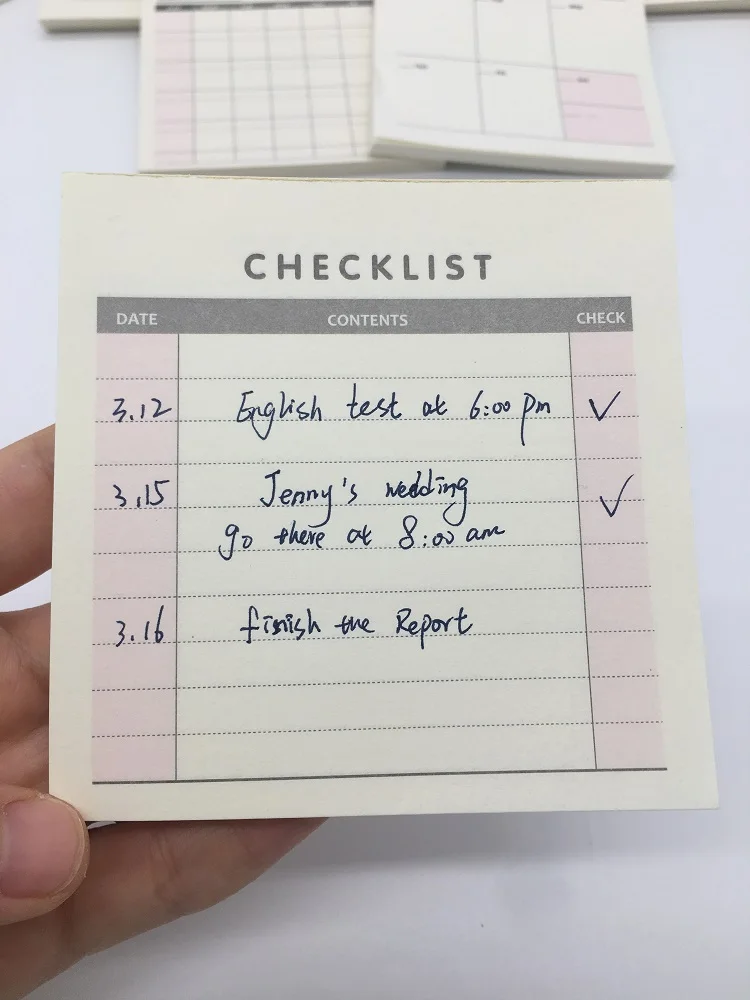 CHECKLIST
DATE CONTENTS CHECK
3.12 English test at 6:00 pm ✓
3.15 Jenny's wedding ✓
go there at 8:00 am
3.16 finish the Report